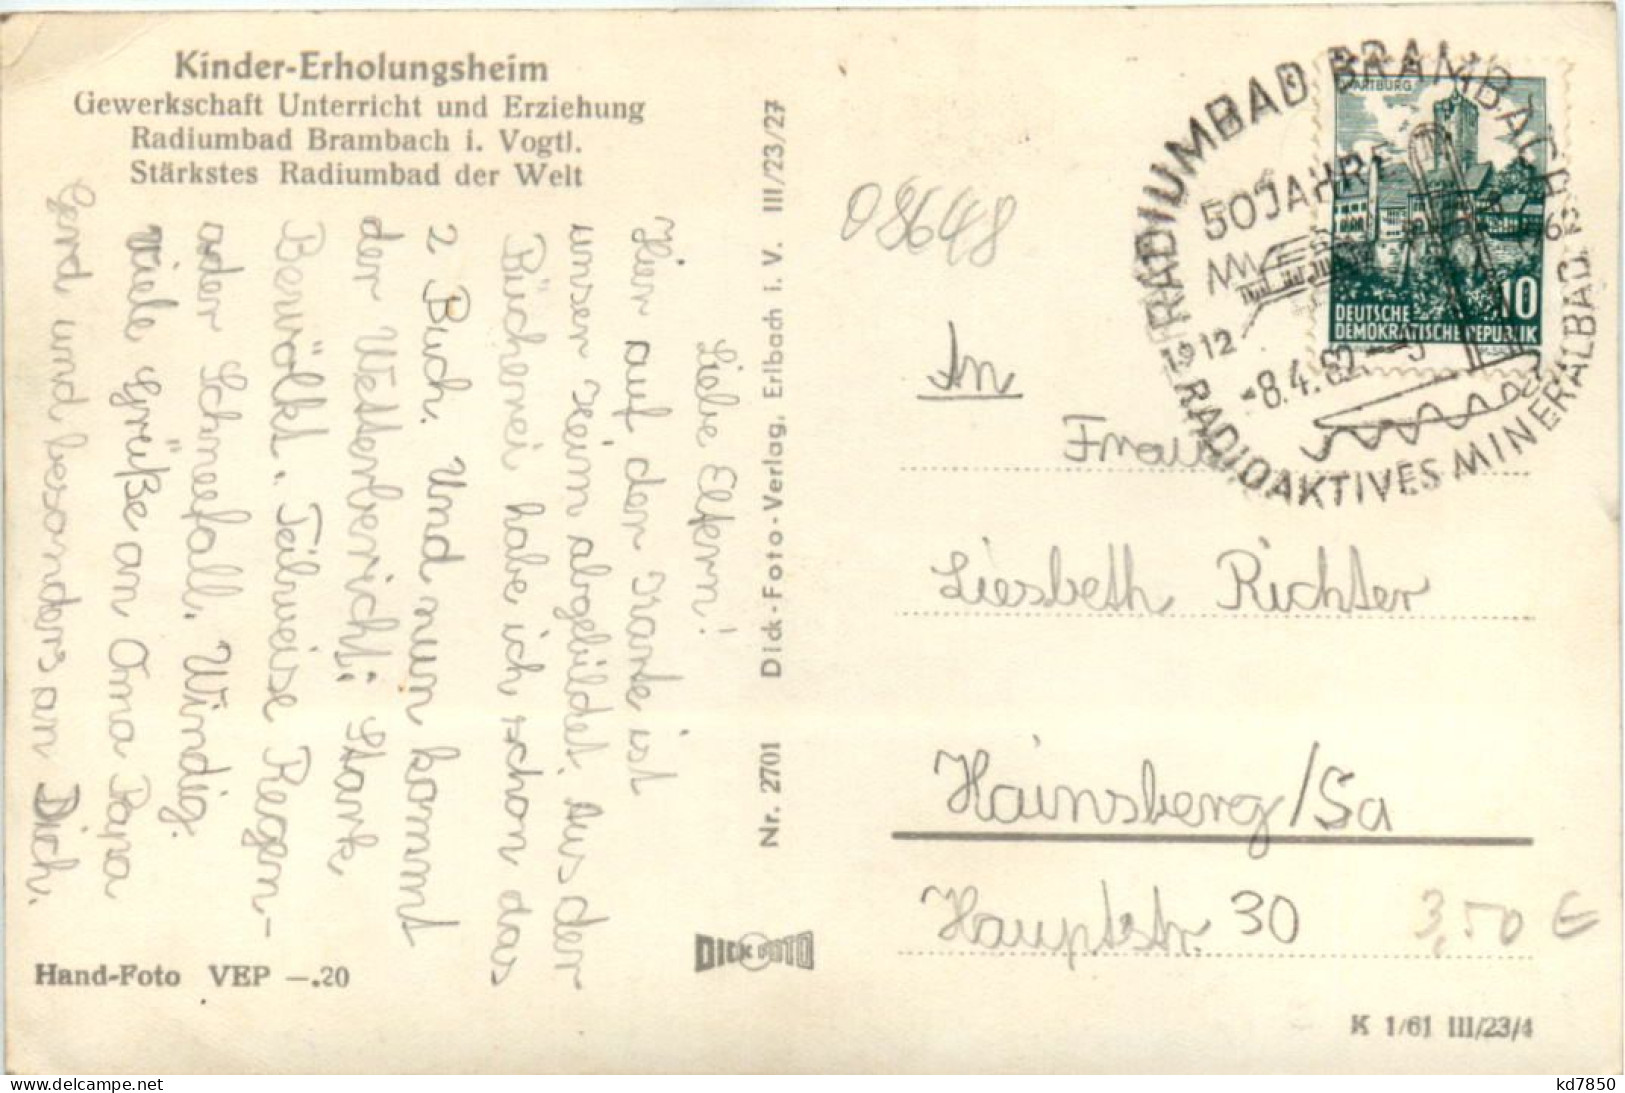 Kinder-Erholungsheim
Gewerkschaft Unterricht und Erziehung
Radiumbad Brambach i. Vogtl.
Stärkstes Radiumbad der Welt
Liebe Eltern!
Hier auf der Karte ist
unser Heim abgebildet. Aus der
Bücherei habe ich schon das
2 Buch. Und nun kommt
der Wetterbericht: Stark
Bewölkt. Teilweise Regen-
oder Schneefall. Windig.
Viele Grüße an Oma Papa
Gerd und besonders an Dich.
Hand-Foto VEP —.20
Nr. 2701 Dick-Foto-Verlag, Erlbach i. V. III/23/27
DICK FOTO
08648
RADIUMBAD BRAMBACH
50 JAHRE
1912
62
-8.4.63-9
RADIOAKTIVES MINERALBAD
WARTBURG
10
DEUTSCHE
DEMOKRATISCHE REPUBLIK
An
Frau
Liesbeth Richter
Hainsberg/Sa
Hauptstr. 30
3,50 €
K 1/61 III/23/4
kd7850